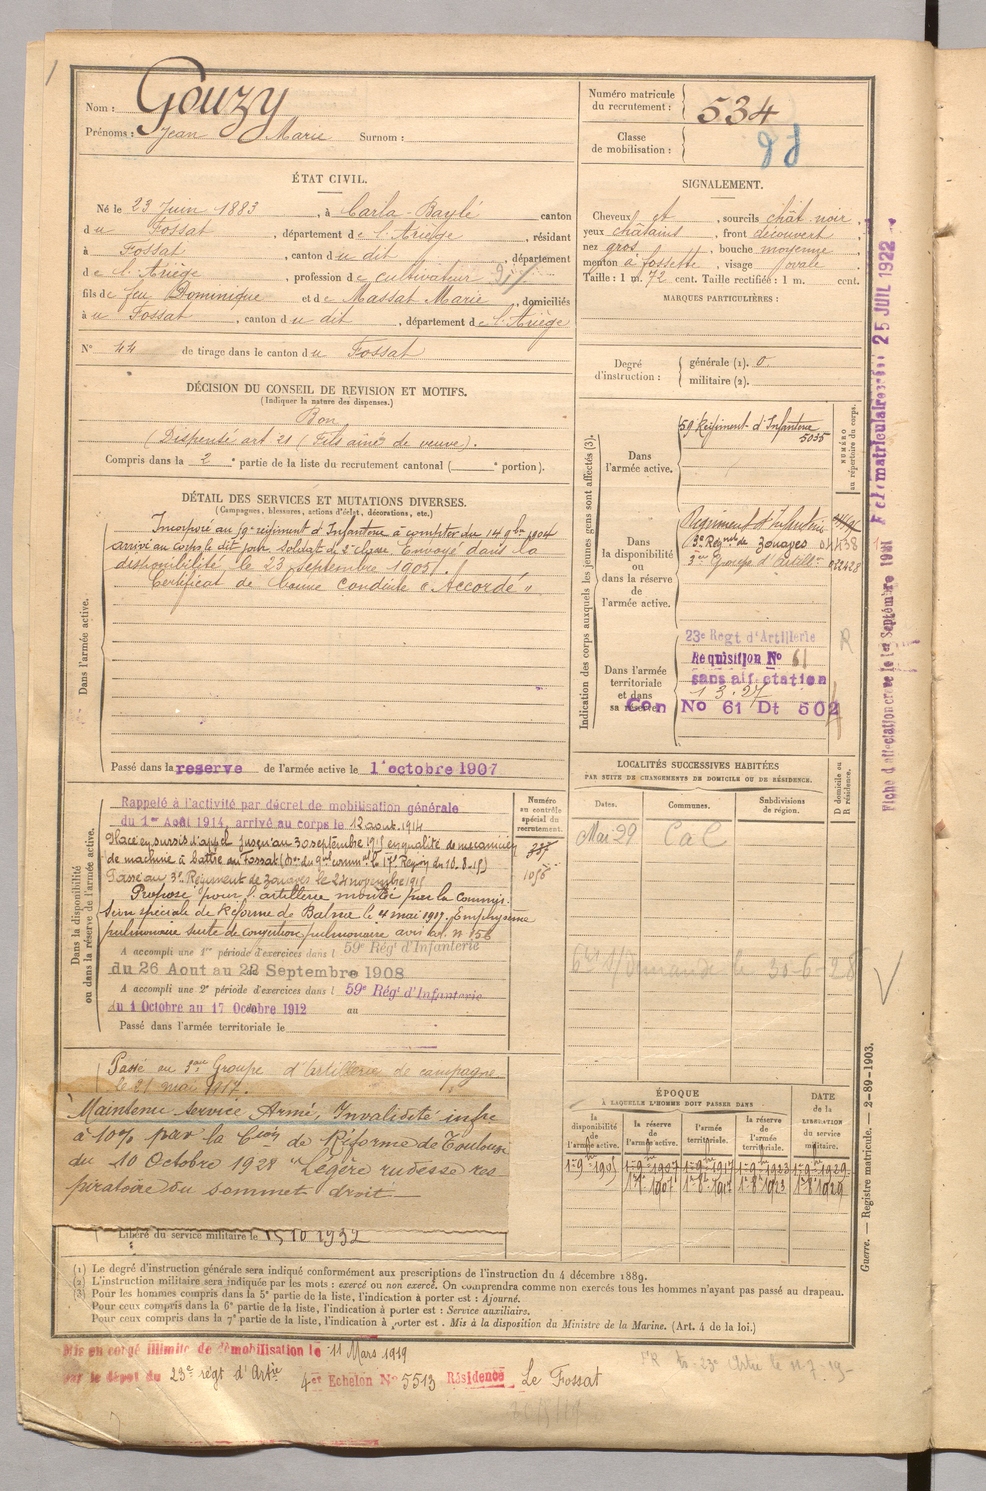 Nom : Gouzy
Prénoms : Jean Marie Surnom :
Numéro matricule
du recrutement : 534
Classe
de mobilisation :
ÉTAT CIVIL.
Né le 23 Juin 1883, à Carla-Baylé canton
du Fossat, département de l'Ariège, résidant
à Fossat, canton du dit, département
de l'Ariège, profession de cultivateur
fils de feu Dominique et de Massat Marie, domiciliés
à u Fossat, canton du dit, département de l'Ariège
N° 44 de tirage dans le canton du Fossat
SIGNALEMENT.
Cheveux et, sourcils chât noir,
yeux châtains, front découvert
nez gros, bouche moyenne
menton à fossette, visage ovale
Taille : 1 m. 72 cent. Taille rectifiée : 1 m. cent.
MARQUES PARTICULIÈRES :
Degré
d'instruction :
générale (1). 0
militaire (2).
DÉCISION DU CONSEIL DE REVISION ET MOTIFS.
(Indiquer la nature des dispenses.)
Bon
(Dispensé art 21 (Fils ainé de veuve).
Compris dans la 2e partie de la liste du recrutement cantonal ( e portion).
DÉTAIL DES SERVICES ET MUTATIONS DIVERSES.
(Campagnes, blessures, actions d'éclat, décorations, etc.)
Dans l'armée active.
Incorporé au 59e régiment d'Infanterie à compter du 14 9bre 1904
arrivé au corps le dit jour soldat de 2e classe. Envoyé dans la
disponibilité le 23 septembre 1905.
Certificat de bonne conduite "Accordé"
Passé dans la reserve de l'armée active le 1er octobre 1907
Indication des corps auxquels les jeunes gens sont affectés (3).
NUMÉRO
au répertoire du corps.
Dans
l'armée active.
59 Régiment d'Infanterie
5035
Dans
la disponibilité
ou
dans la réserve
de
l'armée active.
Régiment d'Infanterie
3e Regnt de Zouaves 04438
3e Groupe d'Artillie 022428
Dans l'armée
territoriale
et dans
sa réserve
23e Regt d'Artillerie R
Requisition No 61
sans affectation
1.3.27
Con No 61 Dt 502
Fiche d'affectation creve le 1er Septembre 1921
Fche matriculaire créée 25 JUIL 1922
Dans la disponibilité
ou dans la réserve de l'armée active.
Numéro
au contrôle
spécial du
recrutement.
1056
Rappelé à l'activité par décret de mobilisation générale
du 1er Août 1914, arrivé au corps le 12 aout 1914
Placé en sursis d'appel jusqu'au 30 septembre 1915 en qualité de mécanicien
de machine à battre au Fossat (Don du Gal comnt la 17e Région du 10.8.15)
Passé au 3e Régiment de Zouaves le 24 novembre 1915
Proposé pour l'artillerie montée par la Commis-
sion spéciale de Réforme de Batna le 4 mai 1917. Emphyseme
pulmonaire suite de congestion pulmonaire avis tel. n° 156
A accompli une 1re période d'exercices dans l 59e Rég' d'Infanterie
du 26 Aout au 22 Septembre 1908
A accompli une 2e période d'exercices dans l 59e Rég' d'Infanterie
du 1 Octobre au 17 Octobre 1912 au
Passé dans l'armée territoriale le
Passé au 3me Groupe d'Artillerie de campagne
le 21 mai 1917.
Maintenu service Armé, Invalidité infre
à 10% par la Cion de Réforme de Toulouse
du 10 Octobre 1928 "Légère rudesse res
piratoire du sommet droit
Libéré du service militaire le 15 10 1932
LOCALITÉS SUCCESSIVES HABITÉES
PAR SUITE DE CHANGEMENTS DE DOMICILE OU DE RÉSIDENCE.
D domicile ou
R résidence.
Dates. Communes. Subdivisions
de région.
Mai-29 CaC
demande le 30-6-28
ÉPOQUE
À LAQUELLE L'HOMME DOIT PASSER DANS
DATE
de la
LIBÉRATION
du service
militaire.
la
disponibilité
de
l'armée active.
la
réserve de
l'armée active.
l'armée
territoriale.
la
réserve de
l'armée
territoriale.
1-9-1905 1-9-1907 1-9-1917 1-9-1923 1-9-1929
Guerre. — Registre matricule. — 2-89-1903.
(1) Le degré d'instruction générale sera indiqué conformément aux prescriptions de l'instruction du 4 décembre 1889.
(2) L'instruction militaire sera indiquée par les mots : exercé ou non exercé. On comprendra comme non exercés tous les hommes n'ayant pas passé au drapeau.
(3) Pour les hommes compris dans la 5e partie de la liste, l'indication à porter est : Ajourné.
Pour ceux compris dans la 6e partie de la liste, l'indication à porter est : Service auxiliaires.
Pour ceux compris dans la 7e partie de la liste, l'indication à porter est . Mis à la disposition du Ministre de la Marine. (Art. 4 de la loi.)
Mis en congé illimité de démobilisation le 11 Mars 1919
par le dépôt du 23e régt d'Artie 4er Echelon No 5513 Résidence Le Fossat